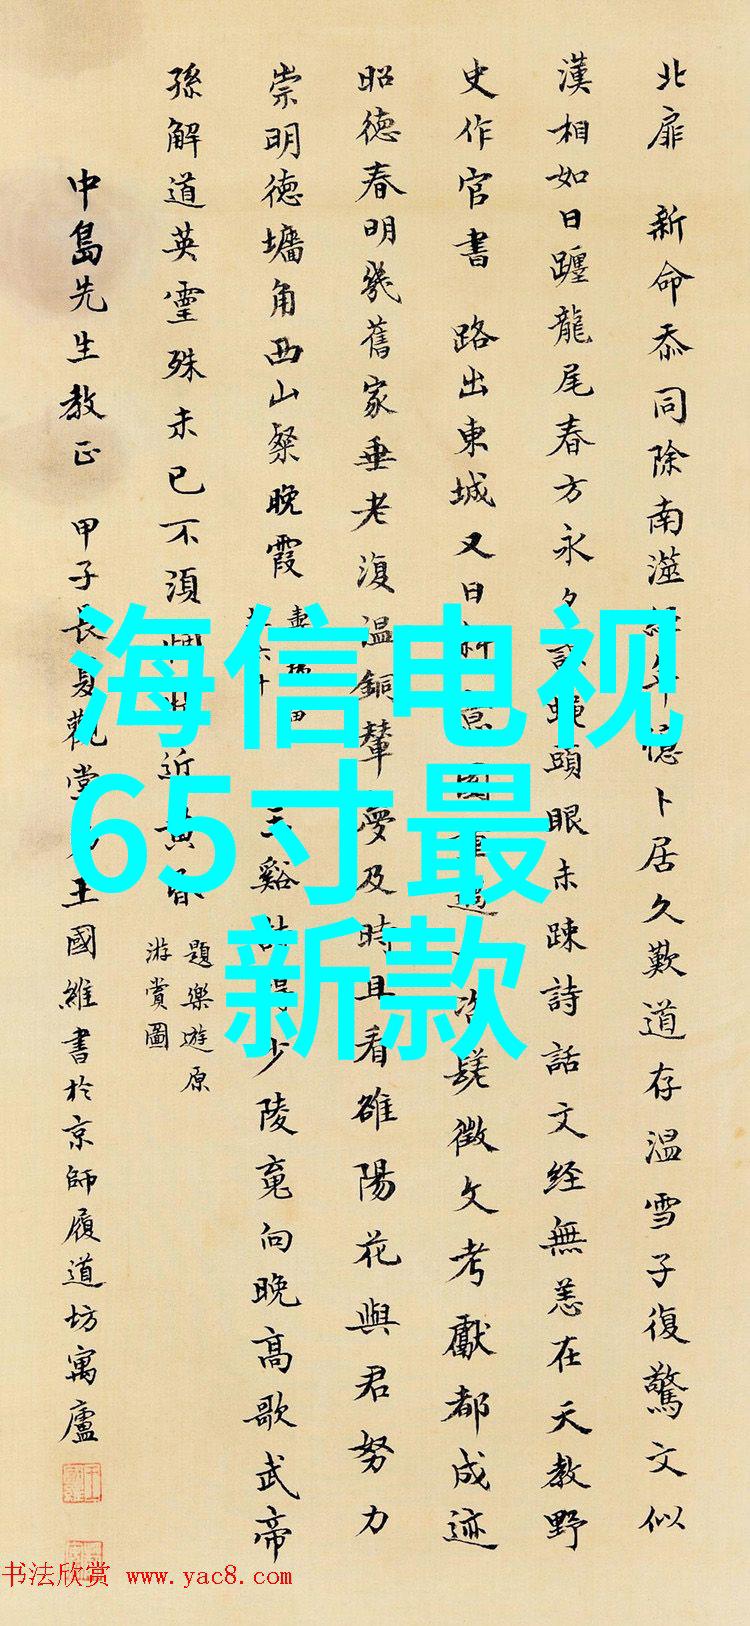 北扉 新命忝同除南澨經年憶卜居久歎道存温雪子復驚文似
漢相如日躔龍尾春方永夕 蠅頭眼未疎詩話文経無恙在天教野
史作官書 路出東城又日斜 園 過 髦徵文考獻都成迹
昭德春明幾舊家垂老復温銅輦 及時且看雒陽花與君努力
崇明德墉角西山粲晚霞
玉谿 少陵竟向晚高歌武帝
孫解道英靈殊未已不須惆悵近黃昏
題樂遊原
游賞圖
中島先生教正 甲子長夏觀堂 王國維書於京師履道坊寓廬
海信电视
65寸最
新款
书法欣赏 www.yac8.com